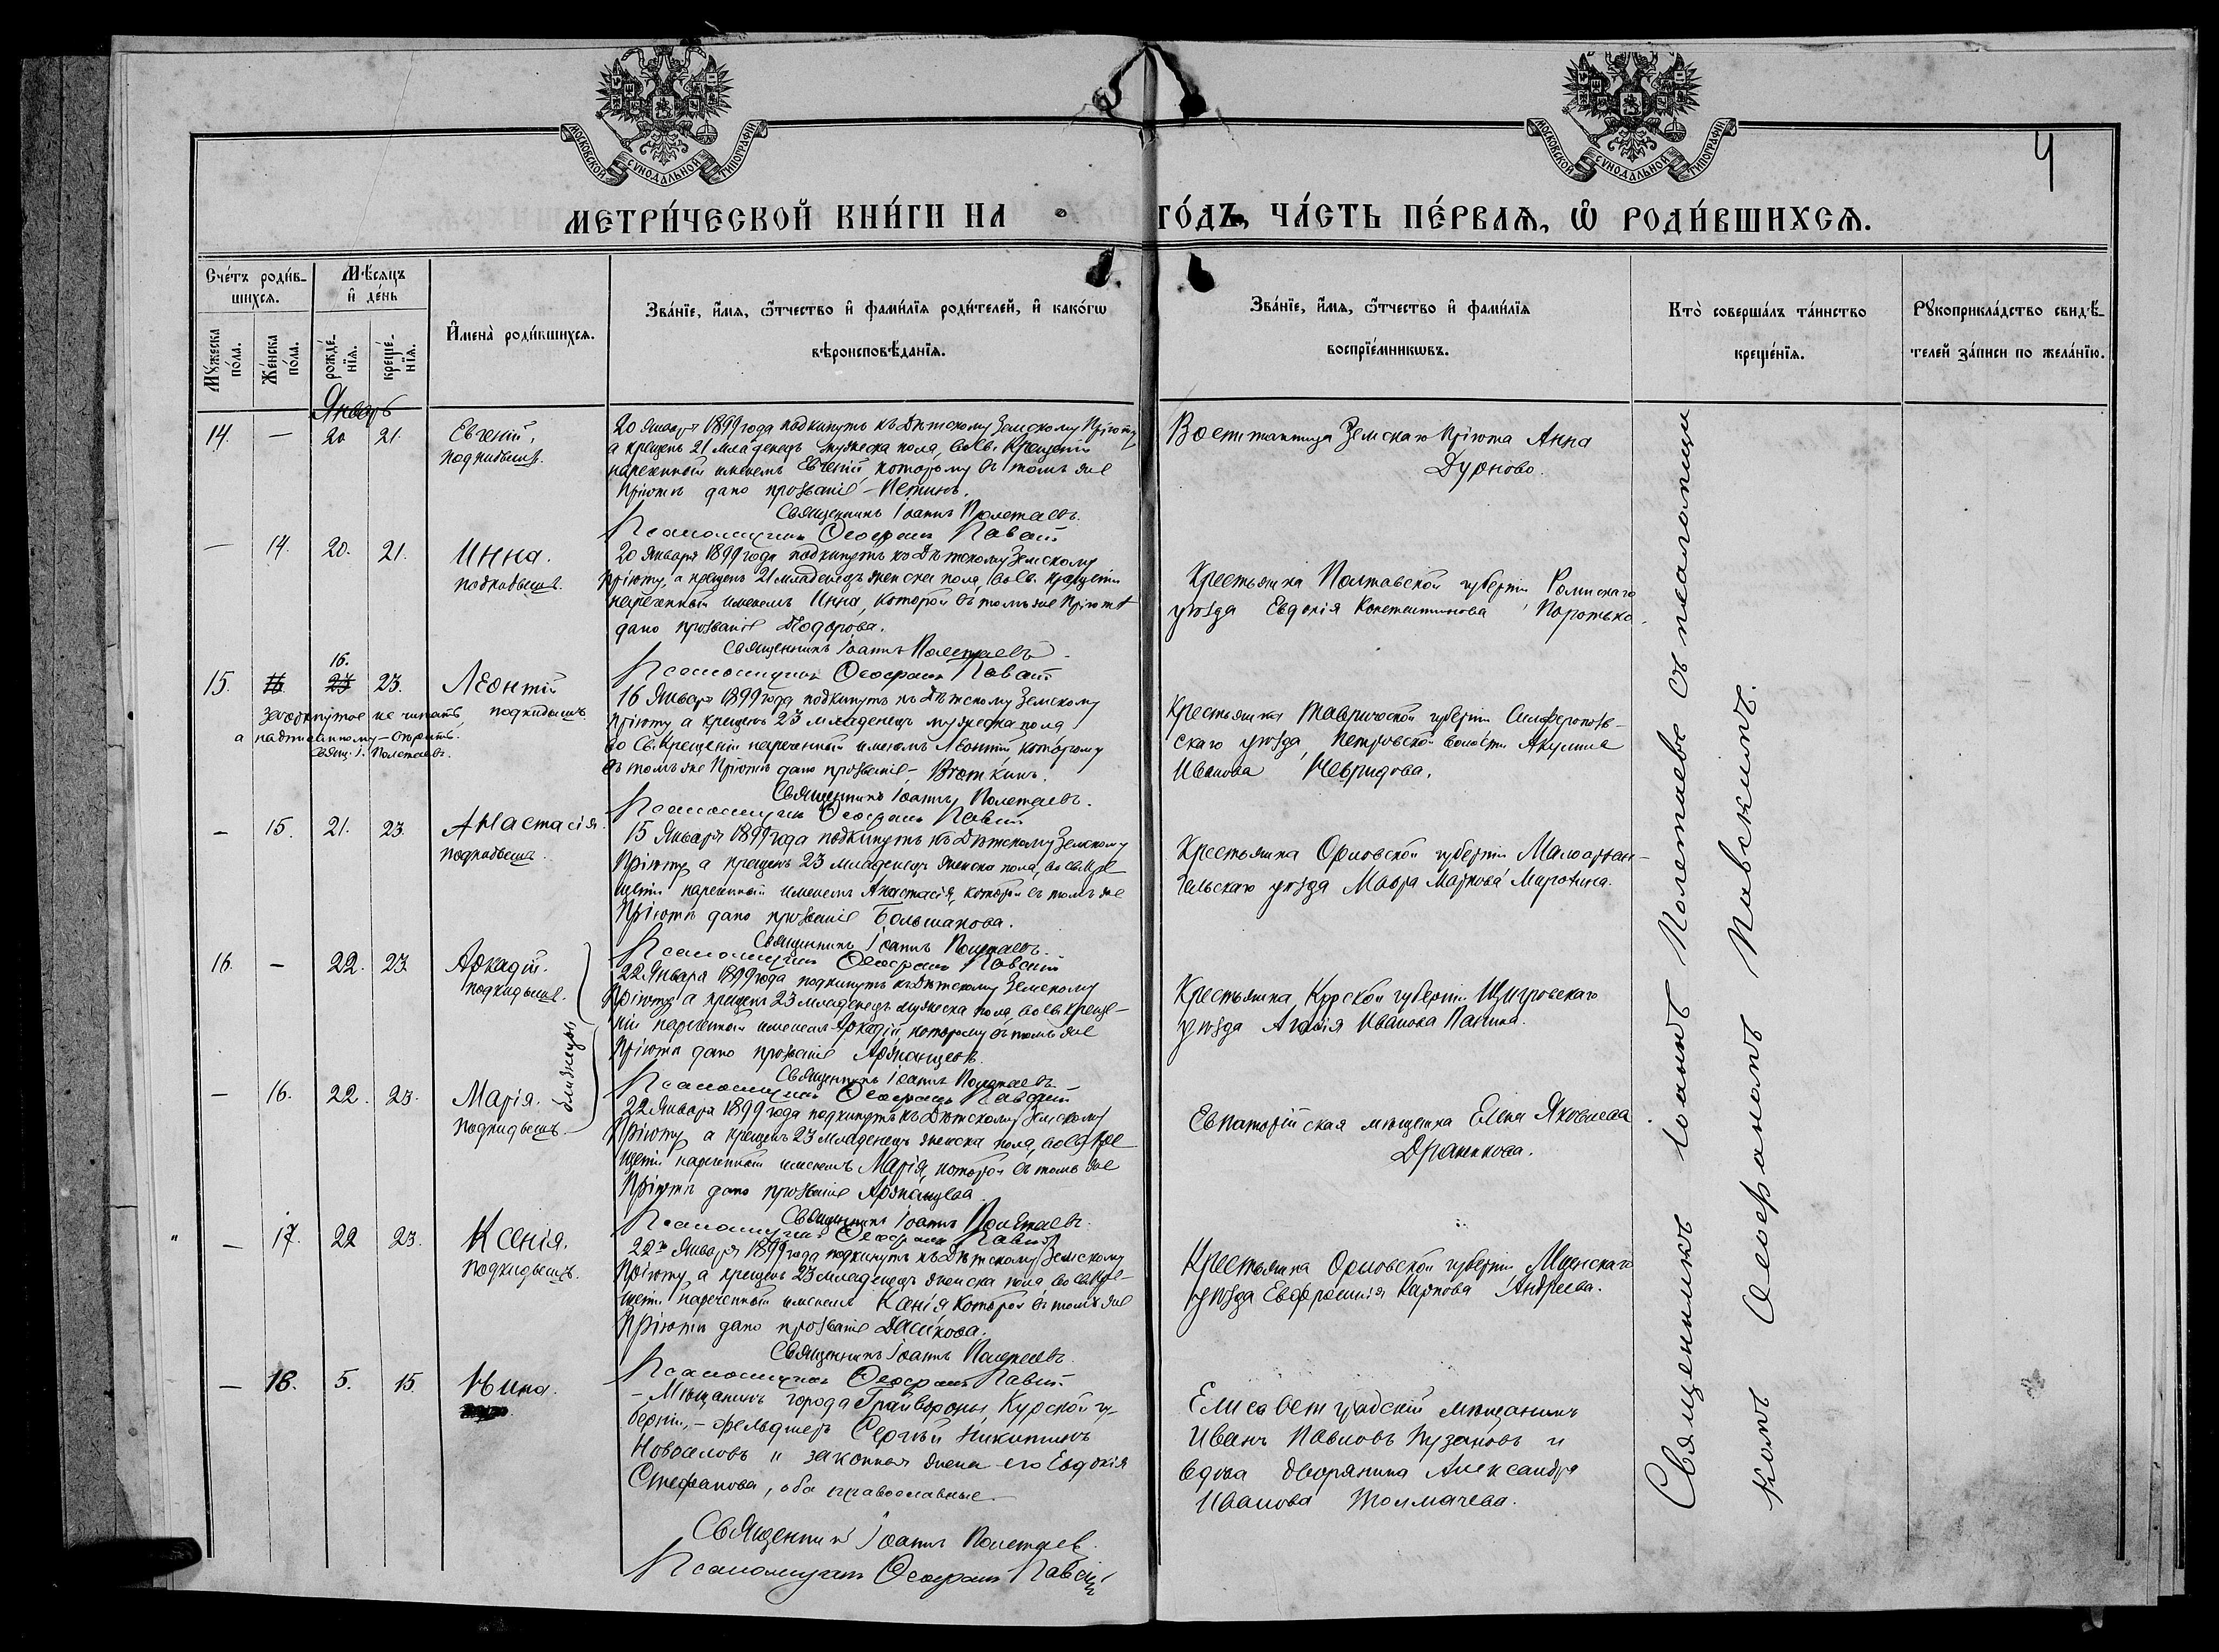 МОСКОВСКОЙ СУНОДАЛЬНОЙ ТИПОГРАФІИ
МОСКОВСКОЙ СУНОДАЛЬНОЙ ТИПОГРАФІИ
4
МЕТРИ́ЧЕСКОЙ КНИ́ГИ НА ГО́ДЪ, ЧА́СТЬ ПЕ́РВАѦ, Ѡ҆ РОДИ́ВШИХСѦ.
Сче́тъ роди́в-
шихсѧ.
Мѣ́сѧцъ
и҆ де́нь
Мꙋ́жеска
по́ла.
Же́нска
по́ла.
рожде́-
нїѧ.
креще́-
нїѧ.
И҆мена̀ роди́вшихсѧ.
Зва́нїе, и҆́мѧ, ѻ҆́тчество и҆ фами́лїѧ роди́телей, и҆ како́гѡ
вѣроисповѣ́данїѧ.
Зва́нїе, и҆́мѧ, ѻ҆́тчество и҆ фами́лїѧ
воспрїе́мникѡвъ.
Кто̀ соверша́лъ та́инство
креще́нїѧ.
Рꙋкоприкла́дство свидѣ́-
телей за́писи по жела́нїю.
Январь
14. — 20 21. Евгеній,
подкидышъ.
20 Января 1899 года подкинутъ къ Дѣтскому Земскому Пріюту,
а крещенъ 21 младенецъ мужеска пола, во св. Крещеніи
нареченный именемъ Евгеній, которому въ томъ же
Пріютѣ дано прозваніе –
Священникъ Іоаннъ Полетаевъ.
Псаломщикъ Ѳеофанъ Павскій
Воспитанница Земскаго Пріюта Анна
Дурново.
— 14. 20. 21. Инна.
подкидышъ.
20 Января 1899 года подкинутъ къ Дѣтскому Земскому
Пріюту, а крещенъ 21 младенецъ женска пола, во св. Крещеніи
нареченный именемъ Инна, которой въ томъ же Пріютѣ
дано прозваніе Ѳедорова.
Священникъ Іоаннъ Полетаевъ.
Псаломщикъ Ѳеофанъ Павскій
Крестьянка Полтавской губерніи Роменскаго
уѣзда Евдокія Константинова
15. 16 16. 23 23. Леонтій
подкидышъ
Зачеркнутое не читать,
а надписанному – вѣрить.
Свящ. І. Полетаевъ.
16 Января 1899 года подкинутъ къ Дѣтскому Земскому
Пріюту а крещенъ 23 младенецъ мужеска пола
во Св. Крещеніи нареченный именемъ Леонтій, которому
въ томъ же Пріютѣ дано прозваніе –
Священникъ Іоаннъ Полетаевъ.
Псаломщикъ Ѳеофанъ Павскій
Крестьянка Таврической губерніи Симферополь-
скаго уѣзда, Петровской волости Акулина
Иванова
— 15. 21. 23. Анастасія.
подкидышъ.
15 Января 1899 года подкинутъ къ Дѣтскому Земскому
Пріюту, а крещенъ 23 младенецъ женска пола, во св. Кре-
щеніи нареченный именемъ Анастасія, которой въ томъ же
Пріютѣ дано прозваніе Большакова.
Священникъ Іоаннъ Полетаевъ.
Псаломщикъ Ѳеофанъ Павскій
Крестьянка Орловской губерніи Малоархан-
гельскаго уѣзда Мавра Маркова Миронина.
16. — 22. 23. Аркадій.
подкидышъ.
близнецы
22 Января 1899 года подкинутъ къ Дѣтскому Земскому
Пріюту, а крещенъ 23 младенецъ мужеска пола, во св. Креще-
ніи нареченный именемъ Аркадій, которому въ томъ же
Пріютѣ дано прозваніе
Священникъ Іоаннъ Полетаевъ.
Псаломщикъ Ѳеофанъ Павскій
Крестьянка Курской губерніи Щигровскаго
уѣзда Агафія Иванова Панина.
— 16. 22. 23. Марія.
подкидышъ.
22 Января 1899 года подкинутъ къ Дѣтскому Земскому
Пріюту а крещенъ 23 младенецъ женска пола, во св. Кре-
щеніи нареченный именемъ Марія, которой въ томъ же
Пріютѣ дано прозваніе
Священникъ Іоаннъ Полетаевъ.
Псаломщикъ Ѳеофанъ Павскій
Евпаторійская мѣщанка Елена Яковлева
— 17. 22 23. Ксенія.
подкидышъ.
22го Января 1899 года подкинутъ къ Дѣтскому Земскому
Пріюту, а крещенъ 23 младенецъ женска пола во св. Кре-
щеніи нареченный именемъ Ксенія которой въ томъ же
Пріютѣ дано прозваніе Дасикова.
Священникъ Іоаннъ Полетаевъ.
Псаломщикъ Ѳеофанъ Павскій
Крестьянка Орловской губерніи Мценскаго
уѣзда Евфросинія Карпова Андреева.
— 18. 5. 15. Нина.
– Мѣщанинъ города Грайворона, Курской гу-
берніи, – фельдшеръ Сергѣй Никитинъ
Новоселовъ и законная жена его Евдокія
Стефанова, оба православные.
Священникъ Іоаннъ Полетаевъ.
Псаломщикъ Ѳеофанъ Павскій
Елисаветградскій мѣщанинъ
Иванъ Павловъ Пузановъ и
вдова дворянина Александра
Иванова Толмачева.
Священникъ Іоаннъ Полетаевъ съ псаломщи-
комъ Ѳеофаномъ Павскимъ.